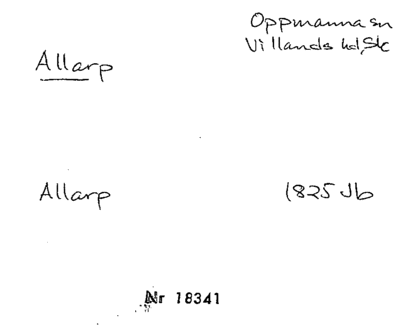 Oppmanna sn
Villands hd, Sk
Allarp
Allarp 1825 Jb
Nr 18341